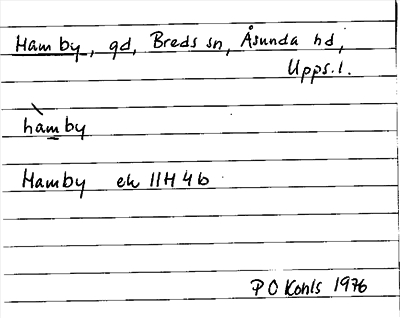 Hamby, gd, Breds sn, Åsunda hd,
Upps. l.
hàmby
Hamby ek 11H 4b
P O Kohls 1976